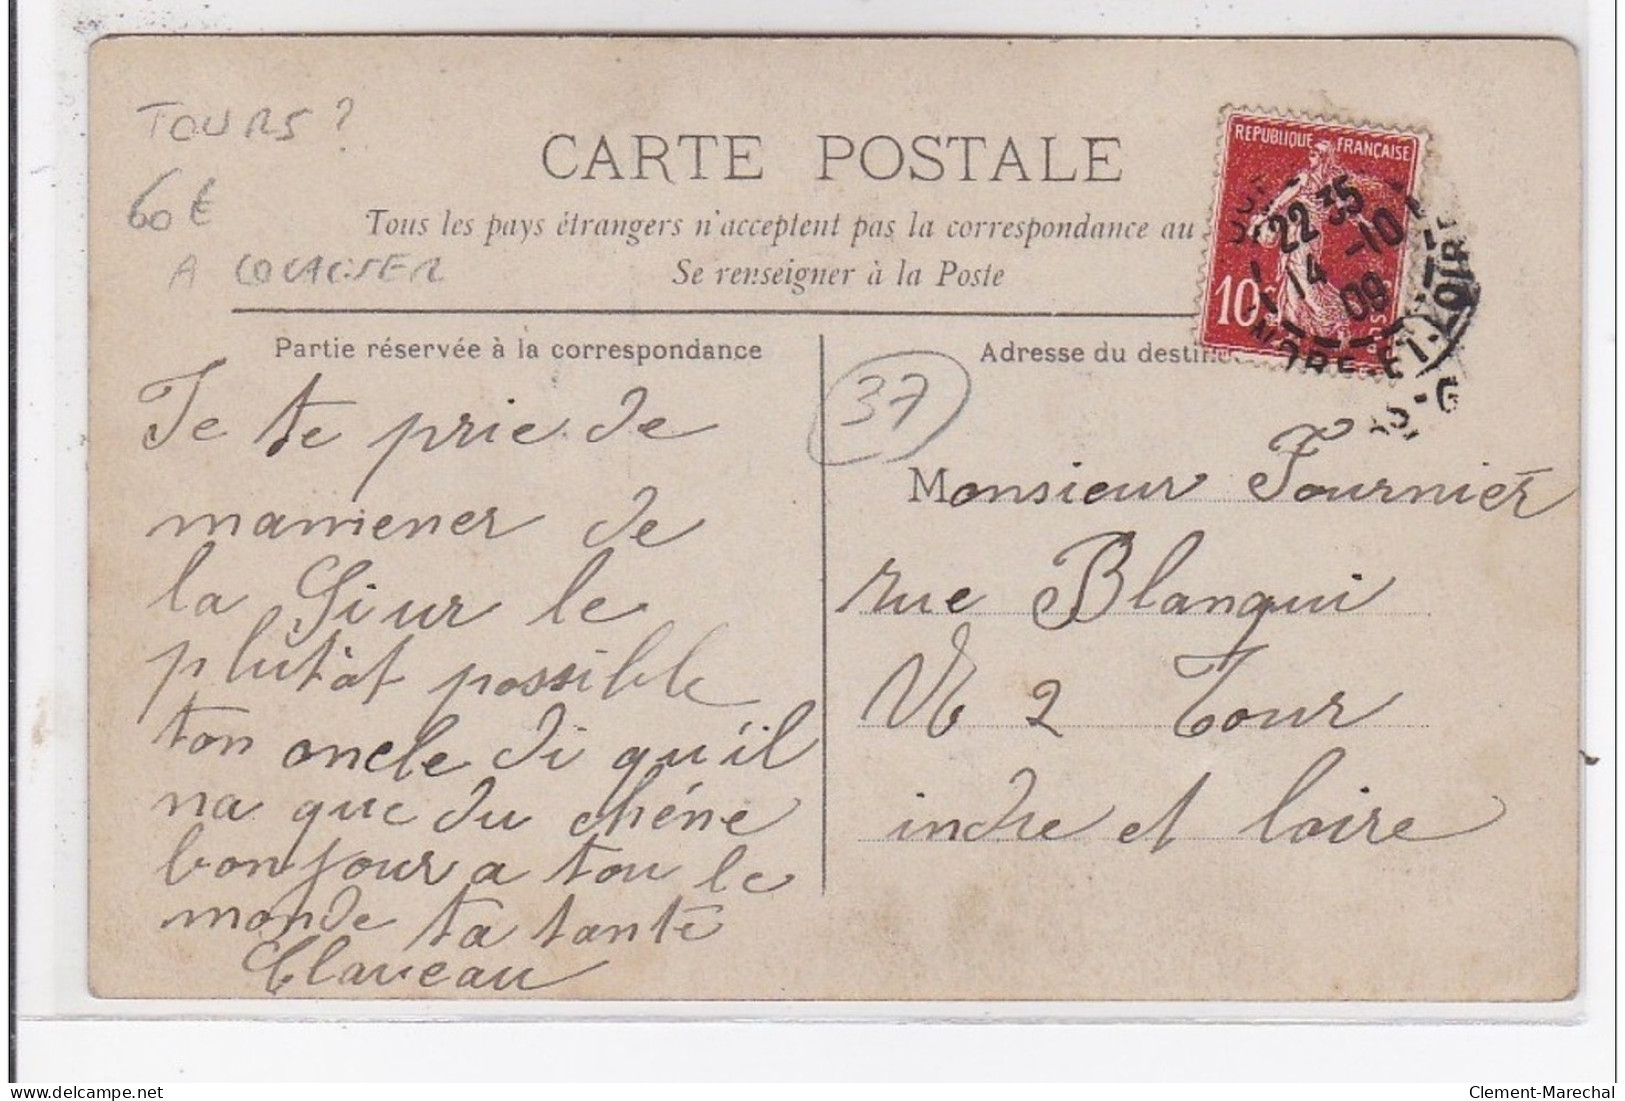 TOURS ?
60€
A LOCALISER
CARTE POSTALE
Tous les pays étrangers n'acceptent pas la correspondance au
Se renseigner à la Poste
REPUBLIQUE FRANÇAISE
10c
22 35
14 -10
09
INDRE-ET-LOIRE
Partie réservée à la correspondance
Adresse du destin
37
Je te prie de
mamener de
la Siur le
plutôt possible
ton oncle di qu'il
na que du chéne
bonjour a tou le
monde ta tante
Claveau
Monsieur Fournier
rue Blanqui
N 2 Tour
indre et loire
Clement-Marechal
delcampe.net